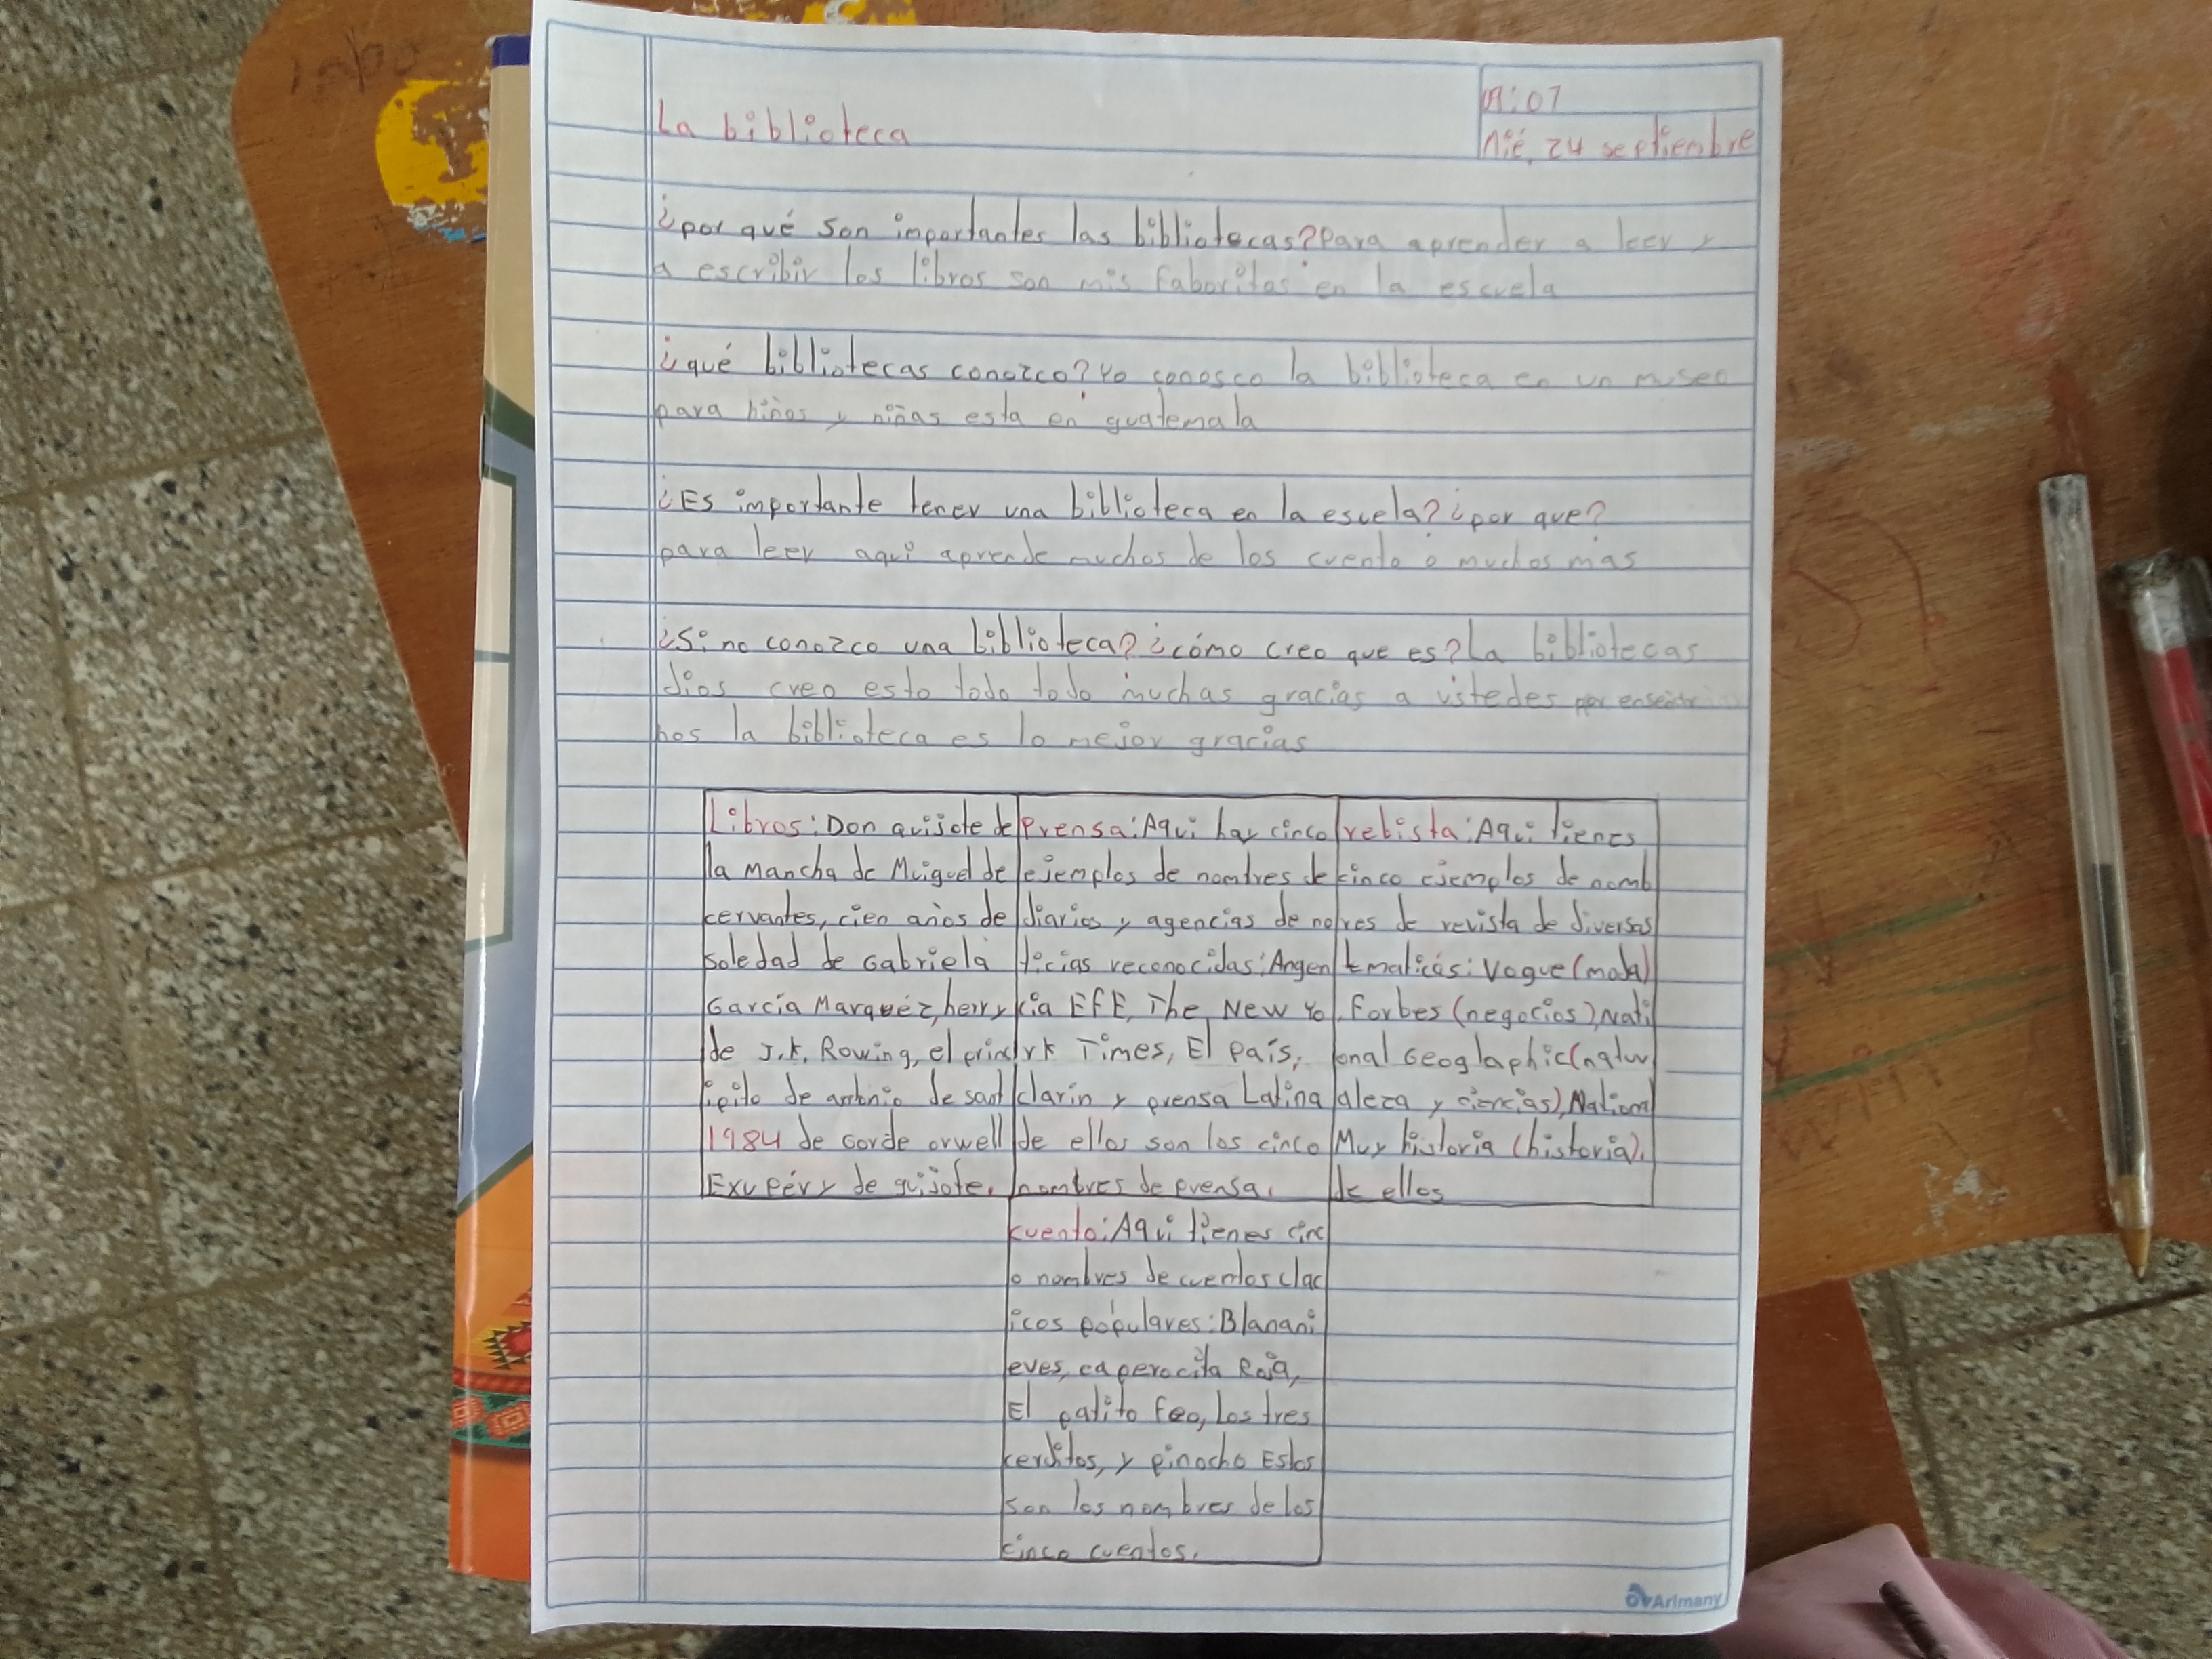 La biblioteca
A: 07
Mié, 24 septiembre
¿por qué son importantes las bibliotecas? Para aprender a leer y
a escribir los libros son mis faboritos en la escuela
¿qué bibliotecas conozco? Yo conosco la biblioteca en un museo
para niños y niñas esta en guatemala
¿Es importante tener una biblioteca en la escuela? ¿por que?
para leer aqui aprende muchos de los cuento o muchos mas
¿Si no conozco una biblioteca? ¿cómo creo que es? La bibliotecas
dios creo esto todo todo muchas gracias a ustedes por
nos la biblioteca es lo mejor gracias
Libros: Don quijote de
la Mancha de Muiguel de
cervantes, cien años de
soledad de Gabriela
García Marquéz, herry
de J.K. Rowing, el princ
ipito de antonio de sant
1984 de gorde orwell
Exupéry de quijote.
Prensa: Aqui hay cinco
ejemplos de nombres de
diarios y agencias de no
ticias reconocidas: Angen
cia EFE, The New Yo
rk Times, El país,
clarin y prensa Latina
de ellos son los cinco
nombres de prensa.
rebista: Aqui tienes
cinco ejemplos de nomb
res de revista de diversas
tematicás: Vogue (moda)
Forbes (negocios), Nati
onal Geoglaphic (natur
aleza y ciencias), National
Muy historia (historia).
de ellos
cuento: Aqui tienes cinc
o nombres de cuentos clac
icos populares: Blanani
eves, caperocita Roja,
El patito feo, los tres
cerditos, y pinocho Estos
son los nombres de los
cinco cuentos.
Arimany